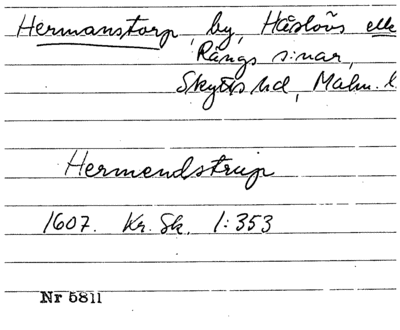 Hermanstorp, by, Håslövs elle
Rängs s:nar,
Skytts hd, Malm. l.
Hermendstrup
1607. Kr. Sk. 1:353
Nr 5811